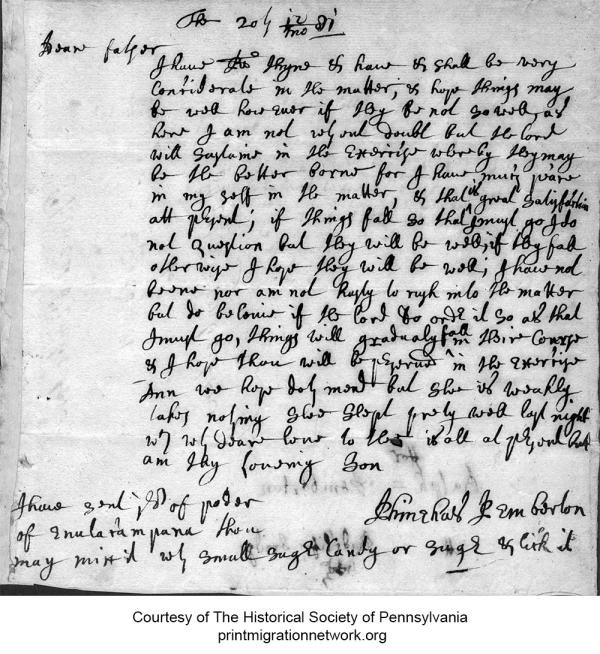 The 20th 12/mo 81
Deare father
I have thyne & have & shall be very
Considerate in the matter, & hope things may
be well how ever if they be not so well, as
here I am not without doubt but the lord
will sustaine in the Exercise wherby they may
be the better borne for I have much peace
in my self in the matter, & that is great satisfaction
att present; if things fall so that I must go I do
not question but they will be well, if they fall
otherwise I hope they will be well; I have not
beene nor am not hasty to rush into the matter
but do beleive if the lord do order it so as that
I must go, things will gradualy fall in their Course
& I hope thou will be preserved in the Exercise
Ann we hope doth mend but shee is weakly
takes nothing shee slept prety well last night
wch wth deare love to thee is all at present but
am thy loveing Son
Phinehas Pemberton
I have sent of poder
of Enulacampana thou
may mix it wth small suger Candy or suger & lick it
Courtesy of The Historical Society of Pennsylvania
printmigrationnetwork.org